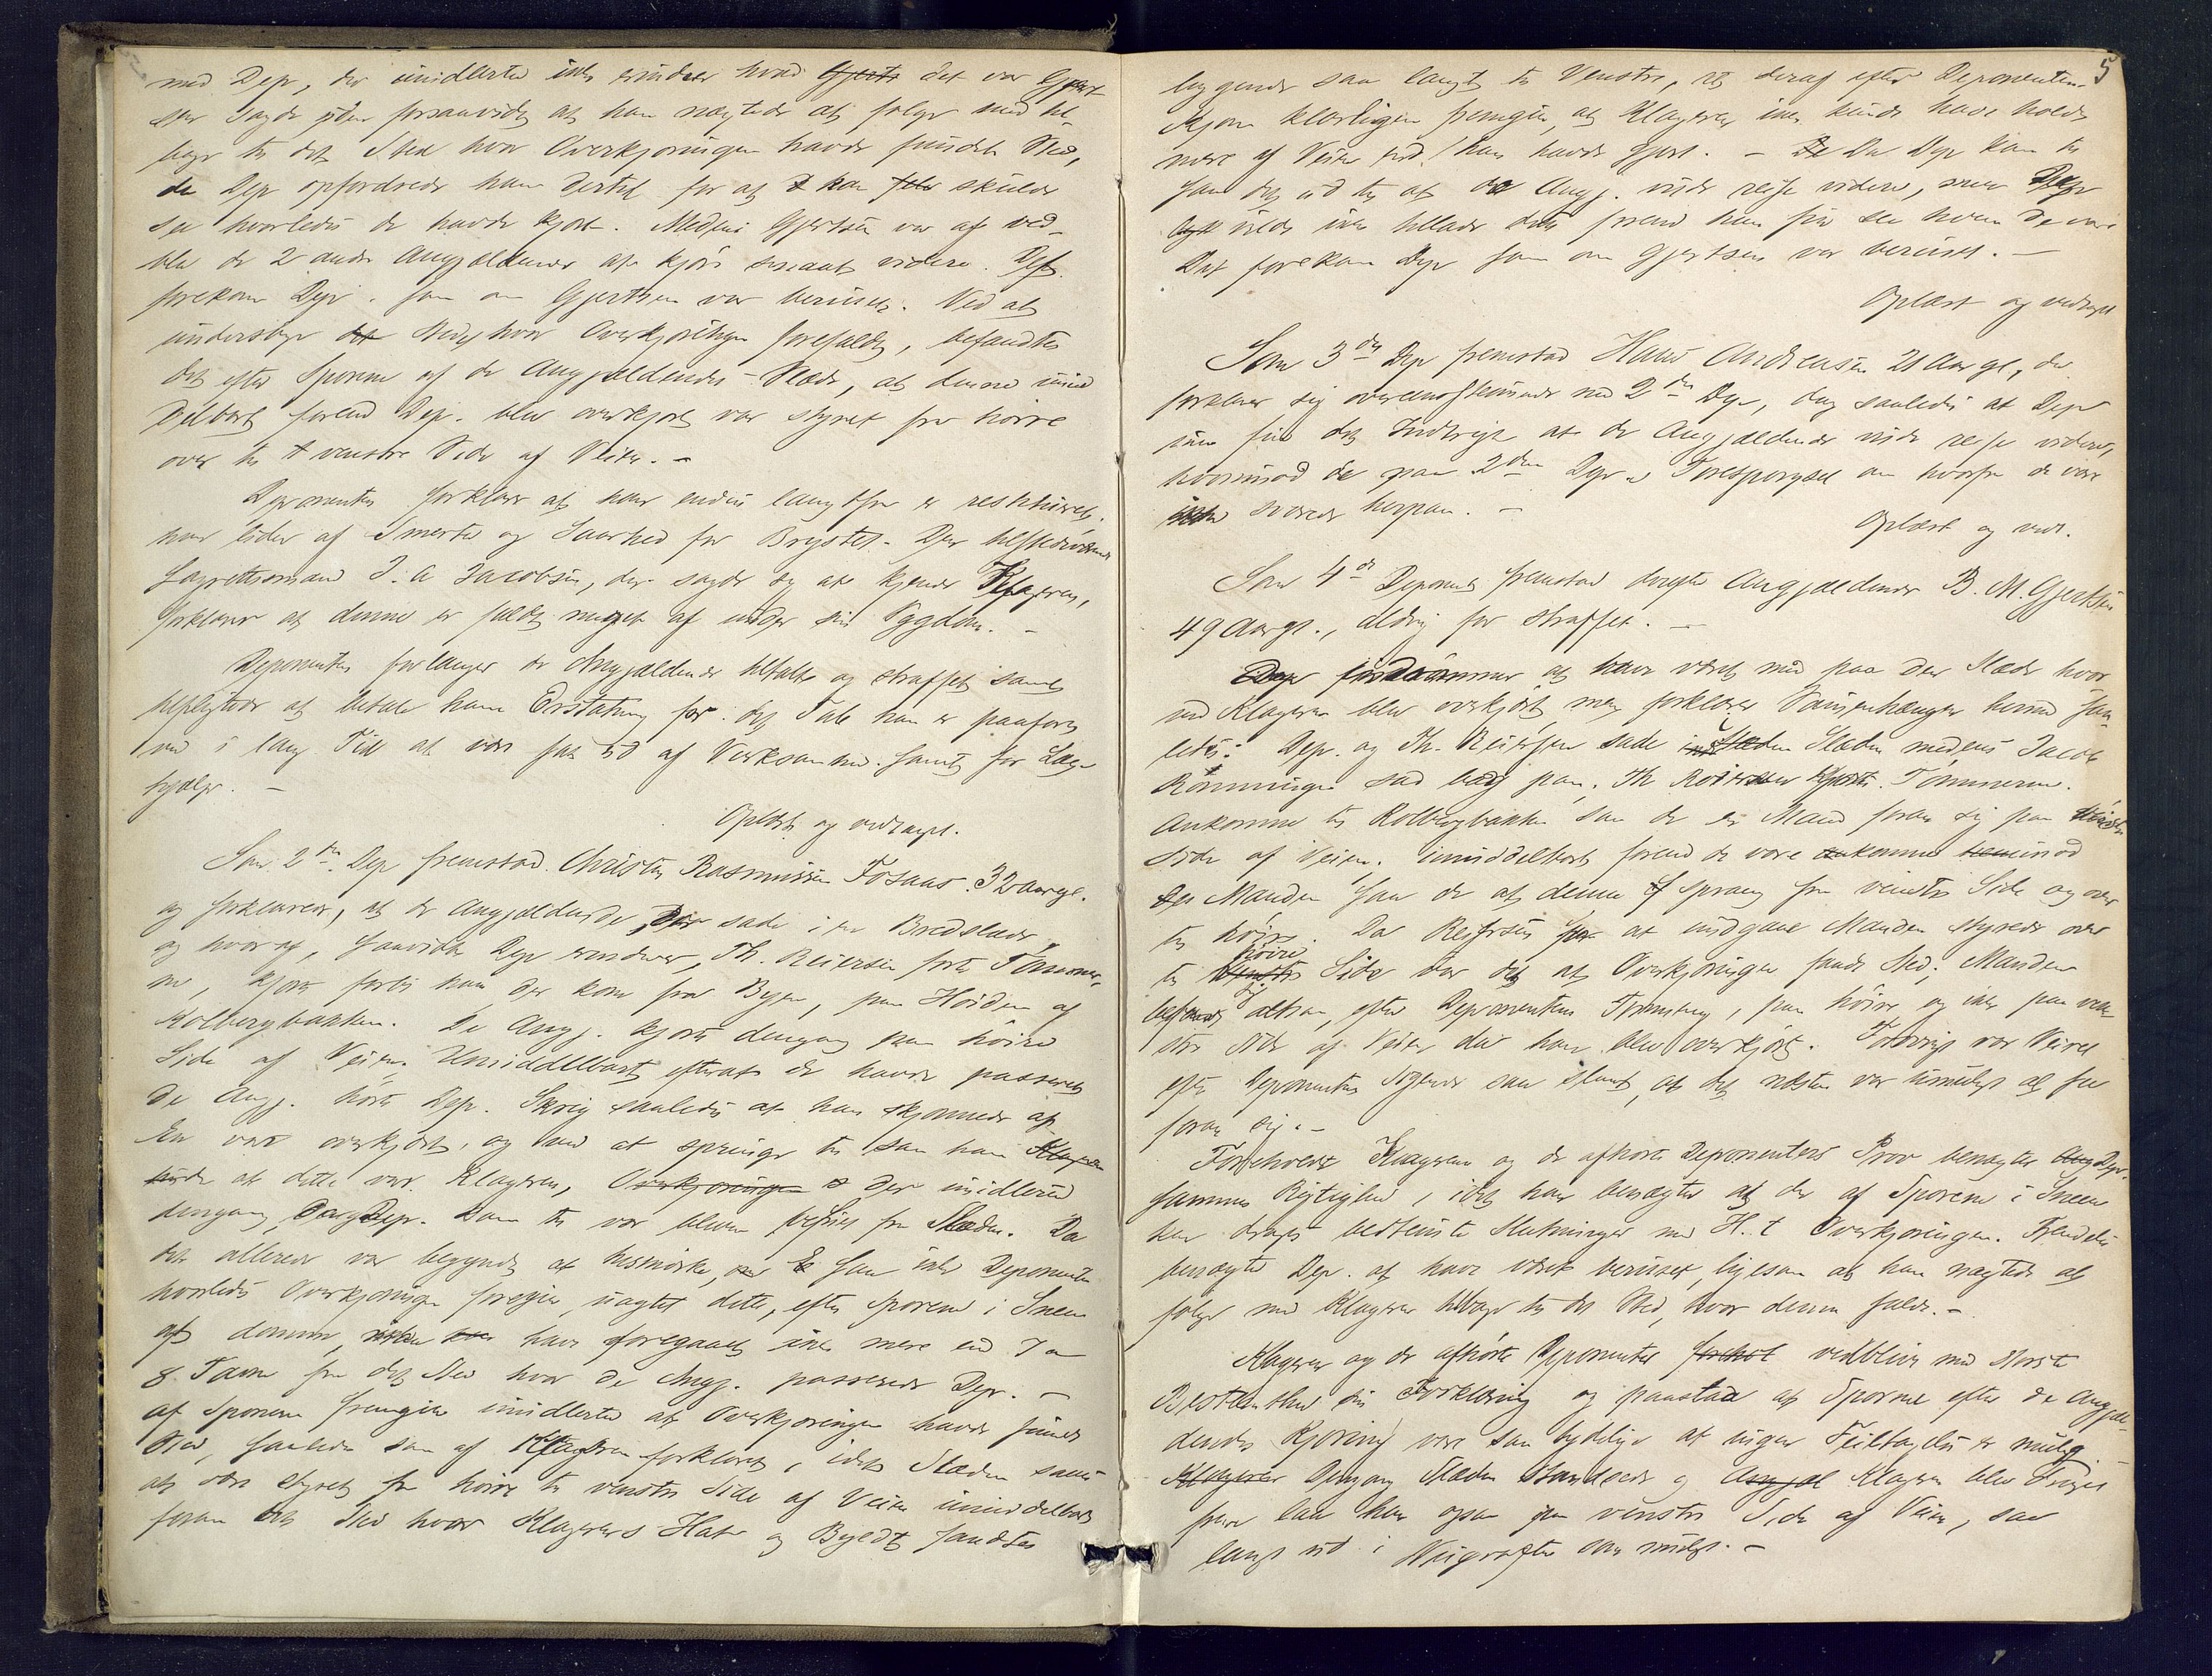 med Dep, der imidlertid ikke erindrer hvad Gjerts det var Gjert-
sen sagde uden forsaavidt at han nægtede at følge med til-
bage til det Sted hvor Overkjøringen havde fundet Sted,
da Dep opfordrede ham dertil for at han skulde
se hvorledes de havde kjørt. Medens Gjertsen var af
de 2 andre Angjældende at kjøre videre. Det
forekom Dep. som om Gjertsen var beruset. Ved at
undersøge det Sted hvor Overkjøringen forefaldt, befandtes
det efter Sporene af de Angjældendes Slæde, at denne umid-
delbart forend Dep. blev overkjørt var styret fra høire
over til venstre Side af Veien. -
Deponenten forklarer at han endnu langtfra er restitueret,
han lider af Smerte og Saarhed for Brystet. Den tilstedeværende
Lagrettesmand J. A Jacobsen, der sagde sig at kjende Klageren,
forklarer at denne er faldt meget af under sin Sygdom. -
Deponenten forlanger de Angjældende tiltalte og straffet samt
tilpligtede at betale ham Erstatning for det Tab han er paaført
ved i lang Tid at være sat ud af Virksomhed samt for Læge-
hjælp. -
Oplæst og vedtaget.
Som 2den Dep fremstod Christen Rasmussen Fosaas 32 aar gl.
og forklarer, at de Angjældende, der sade i en Bredslæde,
og hvoraf, saavidt Dep erindrer, Th. Reiersen førte Tømmer-
ne, kjørte forbi ham der kom fra Byen, paa Høiden af
Kolbergbakken. De Angj. kjørte dengang paa høire
Side af Veien. Umiddelbart efterat de havde passeret
de Angj. hørte Dep. Skrig saaledes at han skjønnede at
En var overkjørt, og ved at springe til saa han Klageren
at dette var Klageren, Overkjøringen der imidlertid
dengang Dep. kom til var bleven befriet fra Slæden. Da
det allerede var begyndt at tusmørke, saa ikke Deponenten
hvorledes Overkjøringen foregik, uagtet dette, efter Sporene i Sneen
at dømme, maa have foregaaet ikke mere end 7 a
8 Favne fra det Sted hvor de Angj. passerede Dep. -
af Sporene fremgik imidlertid at Overkjøringen havde fundet
Sted, saaledes som af Klageren forklaret, idet Slæden saaes
at være styret fra høire til venstre Side af Veien umiddelbart
foran det Sted hvor Klagerens Hat og Byldt fandtes
5
liggende saa langt til Venstre, at deraf efter Deponentens
Skjøn klarligen fremgik, at Klageren ikke kunde have holdt
mere af Veien end han havde gjort. - Da Dep kom til
saa det ud til at de Angj. vilde reise videre, men Dep
vilde ikke tillade det forend han fik se hvem de vare
Det forekom Dep som om Gjertsen var beruset. -
Oplæst og vedtaget
Som 3die Dep fremstod Hans Andreasen 21 Aar gl, der
forklarer sig overensstemmende med 2den Dep, dog saaledes at Dep
ikke fik det Indtryk at de Angjældende vilde reise videre,
hvorimod de paa 2den Dep.s Forespørgsel om hvorfra de vare
ikke svarede herpaa. -
Oplæst og vedt.
Som 4de Deponent fremstod Angjældende B. M. Gjertsen
49 Aar gl., aldrig før straffet. -
Dep at have været med paa den Slæde hvor-
ved Klageren blev overkjørt, men forklarer Sammenhængen hermed saa-
ledes: Dep. og Th. Reiersen sade i Slæden medens Jacob
Rønningen sad bag paa, Th Reiersen kjørte Tømmerne.
Ankomne til Kolbergbakken saa de en Mand foran sig paa venstre
Side af Veien. Umiddelbart forend de vare ankomne
den Manden saa de at denne sprang fra venstre Side og over
til høire. Da Reiersen for at undgaae Manden styrede over
til venstre høire Side var det at Overkjøringen fandt Sted; Manden
befandt sig altsaa, efter Deponentens Formening, paa høire og ikke paa ven-
stre Side af Veien da han blev overkjørt. Forøvrigt var Veiret
efter Deponentens Sigende saa slemt, at det næsten var umuligt at se
foran sig. -
Foreholdt Klagerens og de afhørte Deponenters Prov benægter Dep.
sammes Rigtighed, idet han benægter at der af Sporene i Sneen
kan drages bestemte Slutninger med H. t Overkjøringen. Fremdeles
benægter Dep. at have været beruset, ligesom at han nægtede at
følge med Klageren tilbage til det Sted, hvor denne faldt. -
Klageren og de afhørte Deponenter forholdt vedbliver med største
Bestemthed sin Forklaring og paastaa at Sporene efter de Angjæl-
dendes Kjøring vare saa tydelige at ingen Feiltagelse er mulig
Klageren Dengang Slæden standsede og Angjæl Klageren blev
laa han ogsaa paa venstre Side af Veien, saa
langt ud i Veigrøften som muligt. -